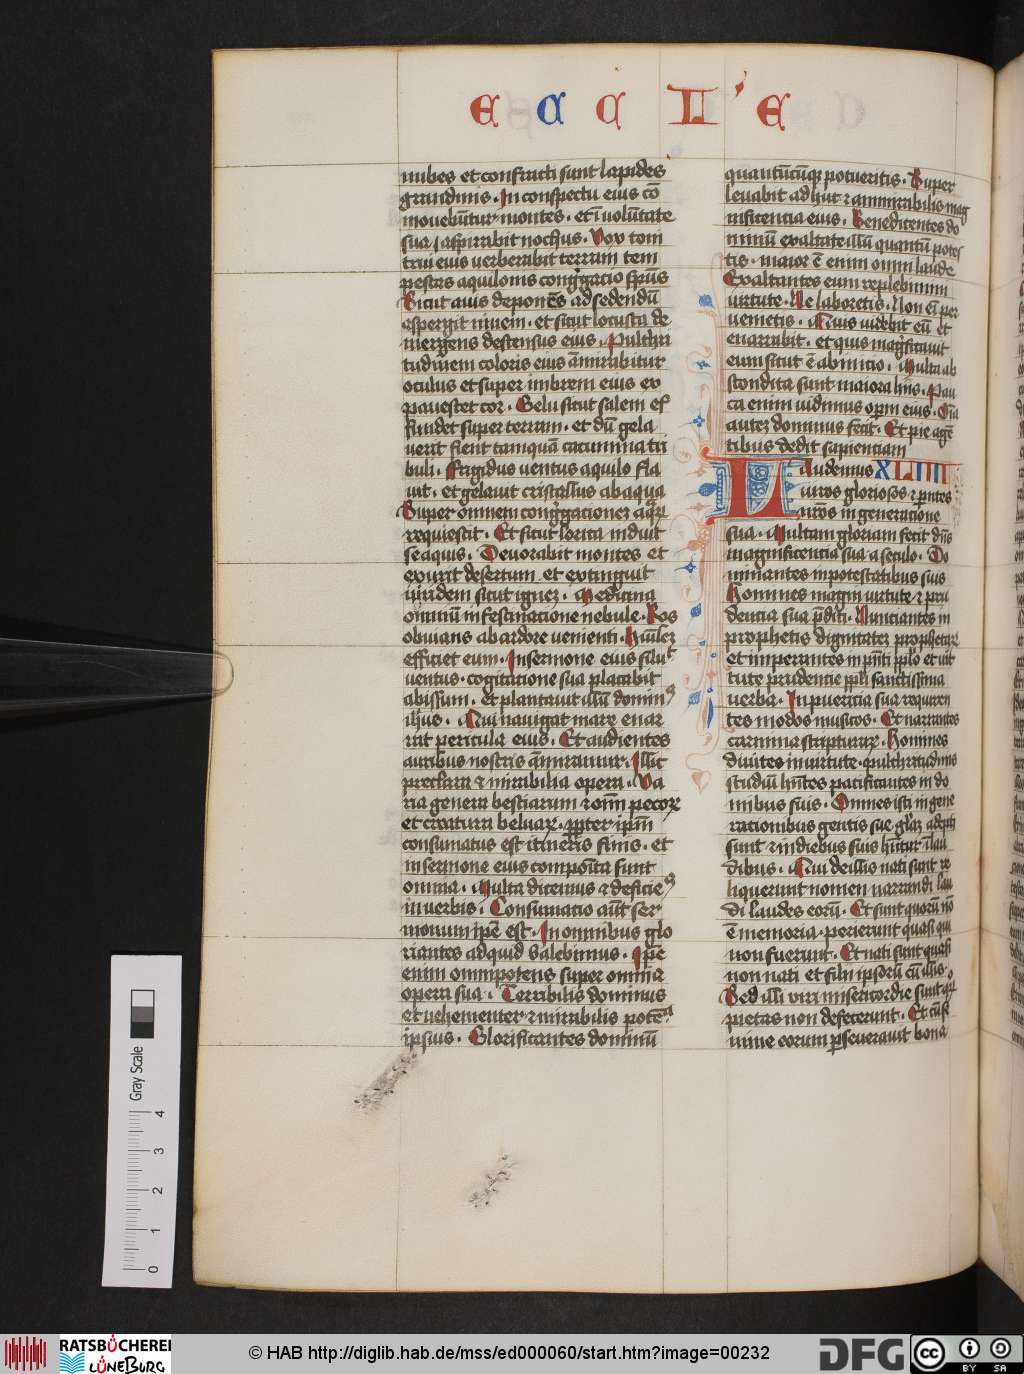 E C C L' E
nubes et confracti sunt lapides
grandinis. In conspectu eius cō
mouebūtur montes. et ī volūtate
sua  aspirabit nothus. Vox toni
trui eius verberabit terram tem
pestas aquilonis congregacio spūs
Sicut auis deponēs ad sedendū
aspergit niuem. et sicut locusta de
mergens descensus eius. Pulchri
tudinem coloris eius āmirabitur
oculus et super imbrem eius ex
pauescet cor. Gelu sicut salem ef
fundet super terram. et dū gela
uerit fient tamquā cacumina tri
buli. Frigidus uentus aquilo fla
uit. et gelauit cristallus ab aqua
Super omnem congregacionez aqꝝ
requiescit. Et sicut lorica induit
se aquis. Deuorabit montes et
exurit desertum et extinguit
uiridem sicut ignez. Medicina
omniū in festinacione nebule. Ros
obuians ab ardore uenienti. Hūilez
efficiet eum. In sermone eius siluit
uentus. cogitatione sua placabit
abissum. et plantauit illū domin⁹
ihus. Qui nauigat mare enar
rat pericula eius. Et audientes
auribus nostris āmiramur. Illic
preclara et mirabilia opera. Va
ria genera bestiarum et oīm pecoꝝ
et creatura beluaꝝ. ꝓpter ipm̄
consumatus est itineris finis. et
in sermone eius composita sunt
omnia. Multa dicemus et deficie⁹
in uerbis. Consumacio aūt ser
monum ipē est. In omnibus glo
riantes ad quid valebimus. Ipē
enim omnipotens super omnia
opera sua. Terribilis dominus
et uehementer et mirabilis pote
ipsius. Glorificantes dominū
quantūcūqꝫ potueritis. Super
leuabit adhuc et ammirabilis mag
nificentia eius. Benedicentes do
minū exaltate illū quantū potes
tis. maior ē enim omni laude
Exaltantes eum replebimini
uirtute. Ne laboretis. Non eī per
uenietis. Quis uidebit eū et
enarrabit. et quis magnificauit
eum sicut ē ab inicio. Multa ab
scondita sunt maiora hiis. Pau
ca enim uidimus operum eius. Oīa
autez dominus fecit. Et pie agē
tibus dedit sapienciam
Laudemus XLIIII
uiros gloriosos et parentes
nrōs in generatione
sua. Multam gloriam fecit dn̄s
magnificentia sua a seculo. Do
minantes in potestatibus suis
Homines magni uirtute et pru
dencia sua p̄diti. Nunciantes in
prophetis dignitatez prophetarꝫ
et imperantes in pn̄ti ppl̄o et uir
tute prudencie ppl̄i sanctissima
uerba. In puericia sua requiren
tes modos musicos. Et narrantes
carmina scripturaꝝ. Homines
diuites in uirtute. pulchritudinis
studiū hn̄tes pacificantes in do
mibus suis. Omnes isti in gene
rationibus gentis sue gloriaz adepti
sunt et in diebus suis habentur ī lau
dibus. Qui de illis nati sunt re
liquerunt nomen narrandi lau
di laudes eorū. Et sunt quorū nō
ē memoria. perierunt quasi qui
non fuerunt. Et nati sunt quasi
non nati et filii ipsorū cū illis.
Sed illi viri misericordie sunt quoꝝ
pietas non defecerunt. Et cū se
mine eorum ꝑseuerauit bona
Gray Scale
0 1 2 3 4
RATSBÜCHEREI
LÜNEBURG
© HAB http://diglib.hab.de/mss/ed000060/start.htm?image=00232
DFG
cc BY SA